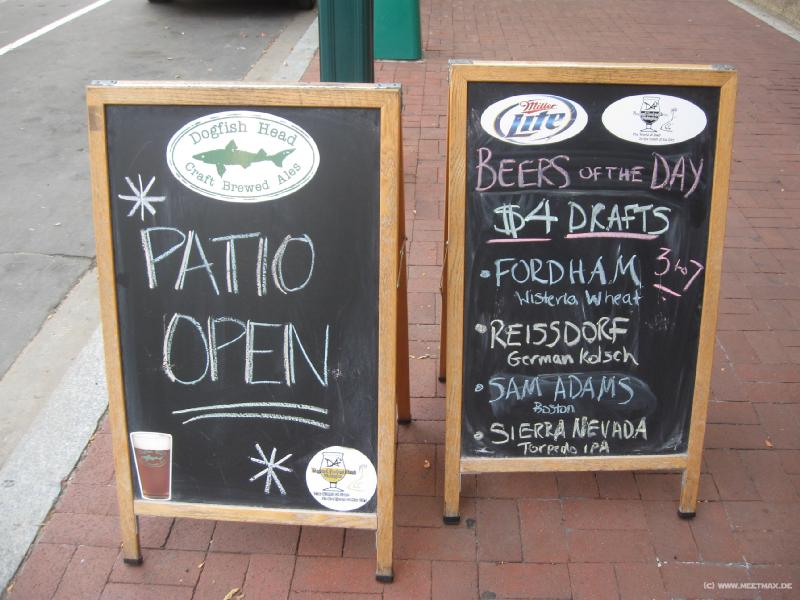 Dogfish Head
Craft Brewed Ales
PATIO
OPEN
Miller
Lite
BEERS OF THE DAY
$4 DRAFTS
3 to 7
• FORDHAM
Wisteria Wheat
• REISSDORF
German Kolsch
• SAM ADAMS
Boston
• SIERRA NEVADA
Torpedo IPA
(C) WWW.MEETMAX.DE